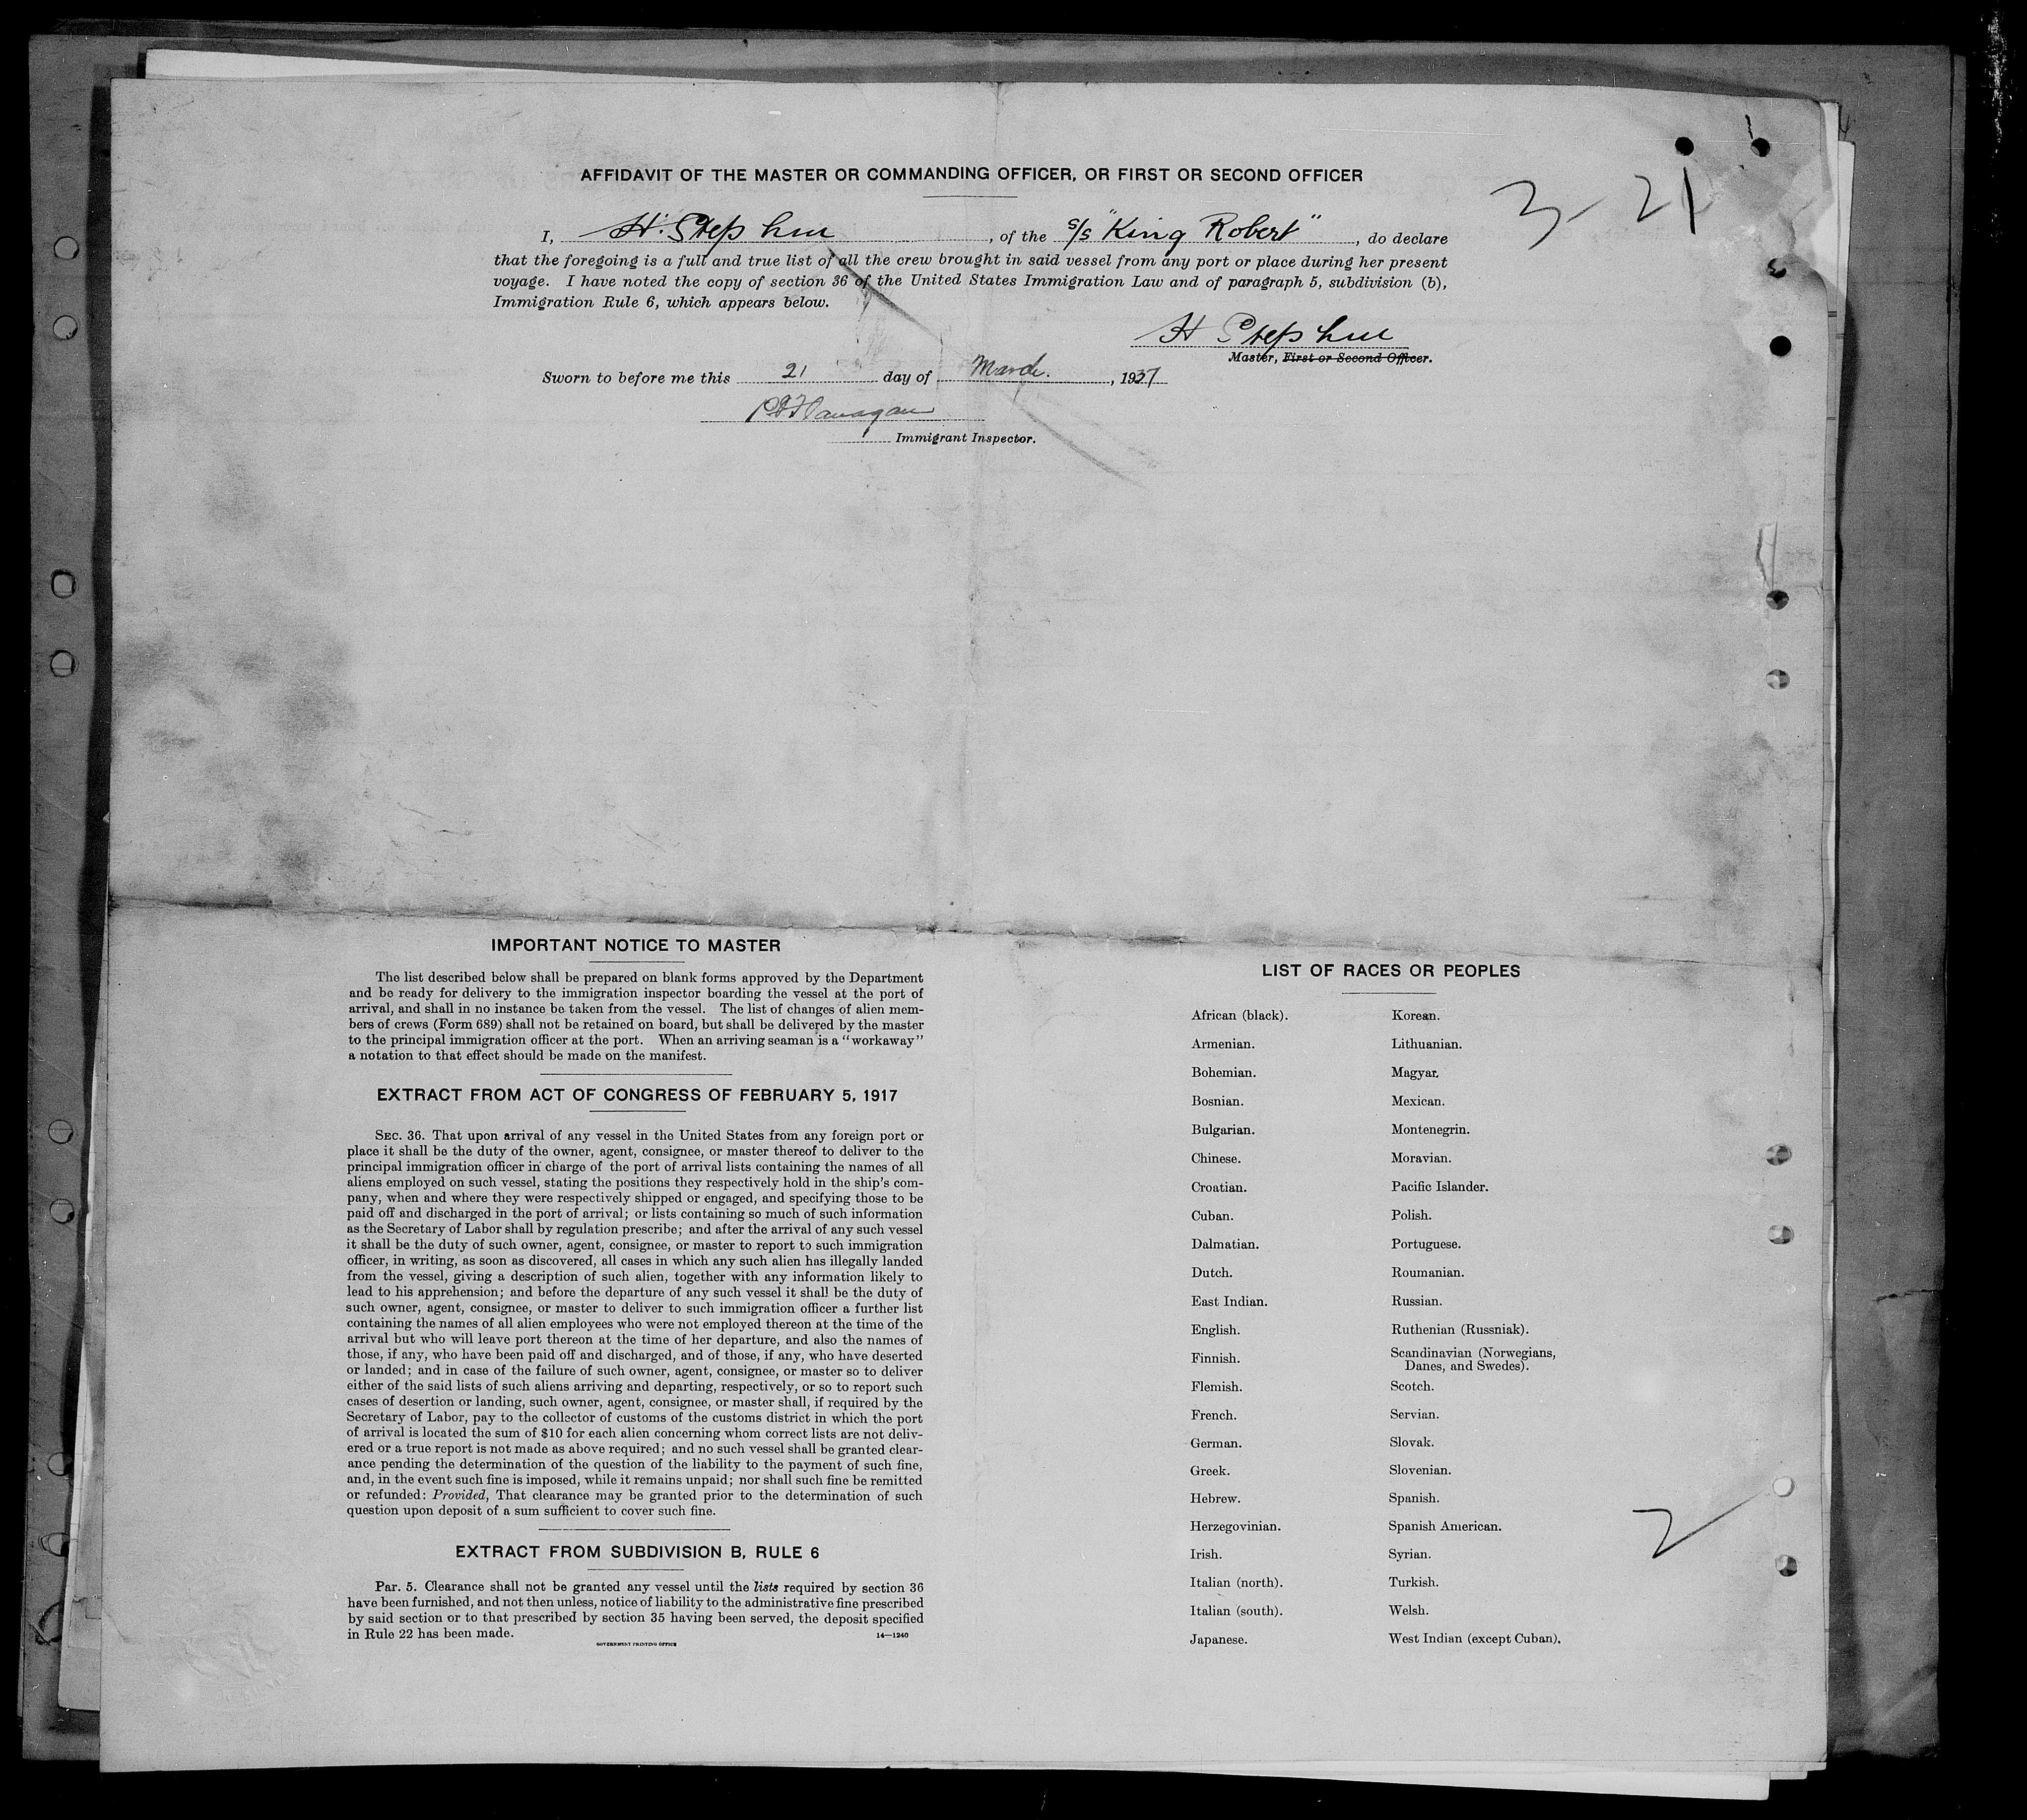 AFFIDAVIT OF THE MASTER OR COMMANDING OFFICER, OR FIRST OR SECOND OFFICER
3-21
I, H. Stephen, of the s/s "King Robert", do declare
that the foregoing is a full and true list of all the crew brought in said vessel from any port or place during her present
voyage. I have noted the copy of section 36 of the United States Immigration Law and of paragraph 5, subdivision (b),
Immigration Rule 6, which appears below.
H Stephen
Master, First or Second Officer.
Sworn to before me this 21 day of March, 1937
Flanagan
Immigrant Inspector.
IMPORTANT NOTICE TO MASTER
The list described below shall be prepared on blank forms approved by the Department
and be ready for delivery to the immigration inspector boarding the vessel at the port of
arrival, and shall in no instance be taken from the vessel. The list of changes of alien mem-
bers of crews (Form 689) shall not be retained on board, but shall be delivered by the master
to the principal immigration officer at the port. When an arriving seaman is a "workaway"
a notation to that effect should be made on the manifest.
EXTRACT FROM ACT OF CONGRESS OF FEBRUARY 5, 1917
SEC. 36. That upon arrival of any vessel in the United States from any foreign port or
place it shall be the duty of the owner, agent, consignee, or master thereof to deliver to the
principal immigration officer in charge of the port of arrival lists containing the names of all
aliens employed on such vessel, stating the positions they respectively hold in the ship's com-
pany, when and where they were respectively shipped or engaged, and specifying those to be
paid off and discharged in the port of arrival; or lists containing so much of such information
as the Secretary of Labor shall by regulation prescribe; and after the arrival of any such vessel
it shall be the duty of such owner, agent, consignee, or master to report to such immigration
officer, in writing, as soon as discovered, all cases in which any such alien has illegally landed
from the vessel, giving a description of such alien, together with any information likely to
lead to his apprehension; and before the departure of any such vessel it shall be the duty of
such owner, agent, consignee, or master to deliver to such immigration officer a further list
containing the names of all alien employees who were not employed thereon at the time of the
arrival but who will leave port thereon at the time of her departure, and also the names of
those, if any, who have been paid off and discharged, and of those, if any, who have deserted
or landed; and in case of the failure of such owner, agent, consignee, or master so to deliver
either of the said lists of such aliens arriving and departing, respectively, or so to report such
cases of desertion or landing, such owner, agent, consignee, or master shall, if required by the
Secretary of Labor, pay to the collector of customs of the customs district in which the port
of arrival is located the sum of $10 for each alien concerning whom correct lists are not deliv-
ered or a true report is not made as above required; and no such vessel shall be granted clear-
ance pending the determination of the question of the liability to the payment of such fine,
and, in the event such fine is imposed, while it remains unpaid; nor shall such fine be remitted
or refunded: Provided, That clearance may be granted prior to the determination of such
question upon deposit of a sum sufficient to cover such fine.
EXTRACT FROM SUBDIVISION B, RULE 6
Par. 5. Clearance shall not be granted any vessel until the lists required by section 36
have been furnished, and not then unless, notice of liability to the administrative fine prescribed
by said section or to that prescribed by section 35 having been served, the deposit specified
in Rule 22 has been made.
14—1240
GOVERNMENT PRINTING OFFICE
LIST OF RACES OR PEOPLES
African (black). Korean.
Armenian. Lithuanian.
Bohemian. Magyar.
Bosnian. Mexican.
Bulgarian. Montenegrin.
Chinese. Moravian.
Croatian. Pacific Islander.
Cuban. Polish.
Dalmatian. Portuguese.
Dutch. Roumanian.
East Indian. Russian.
English. Ruthenian (Russniak).
Finnish. Scandinavian (Norwegians,
Danes, and Swedes).
Flemish. Scotch.
French. Servian.
German. Slovak.
Greek. Slovenian.
Hebrew. Spanish.
Herzegovinian. Spanish American.
Irish. Syrian.
Italian (north). Turkish.
Italian (south). Welsh.
Japanese. West Indian (except Cuban).
2